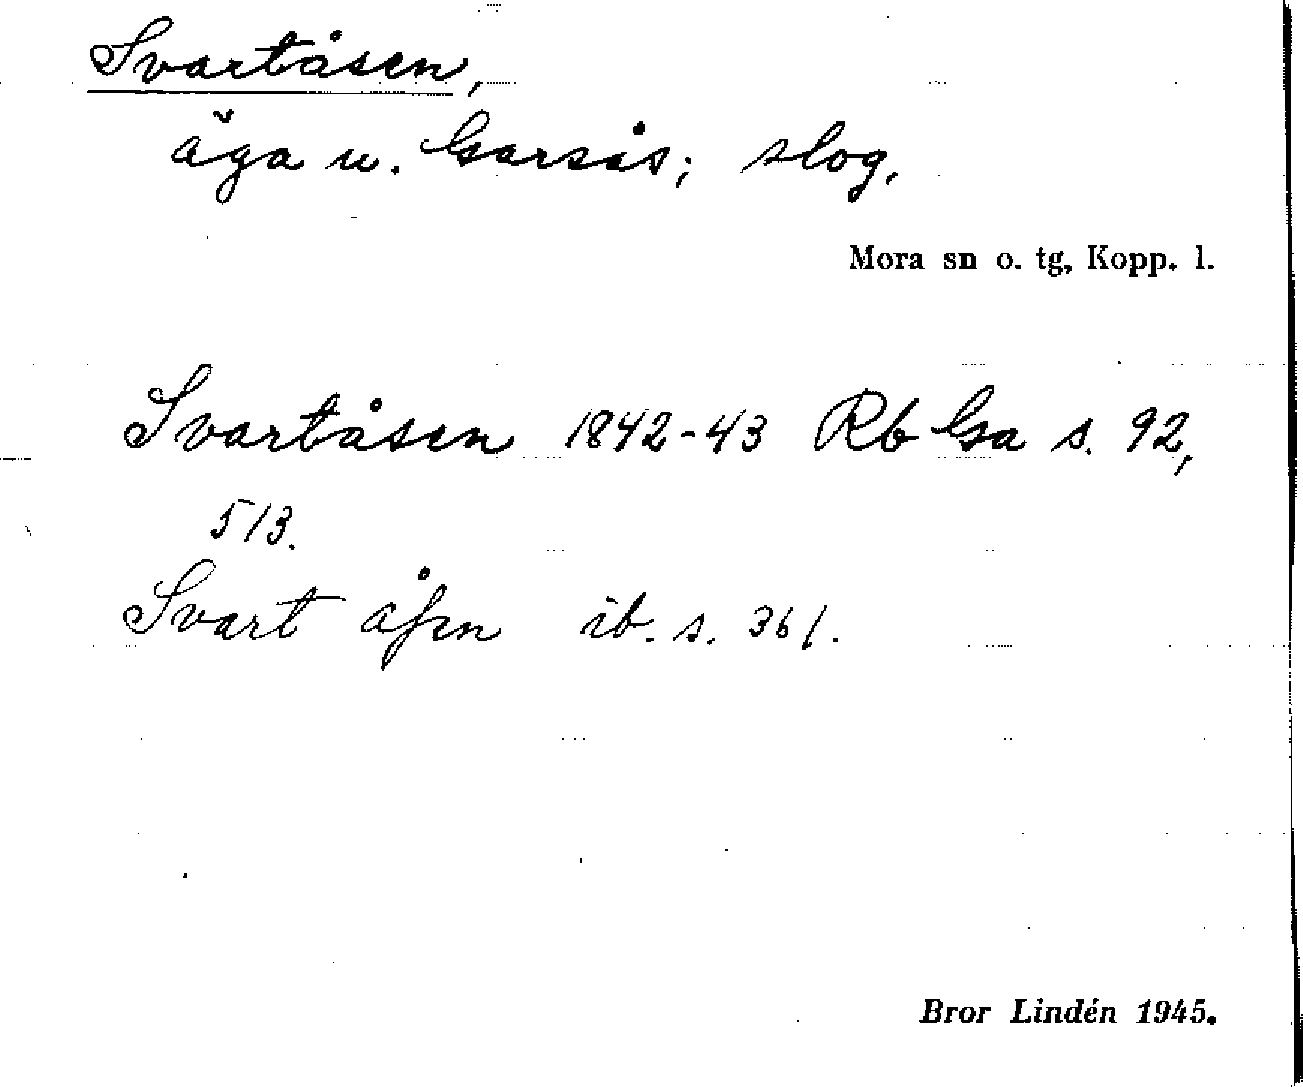 Svartåsen,
äga u. Garsås; slog.
Mora sn o. tg, Kopp. l.
Svartåsen 1842-43 Rb Ga s. 92,
513.
Svart åſen ib. s. 361.
Bror Lindén 1945.